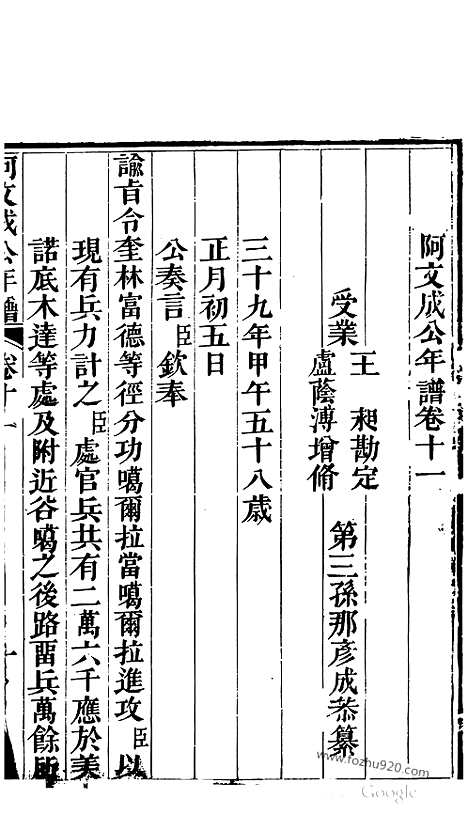 阿文成公年譜卷十一
受業
王昶勘定
盧蔭溥增脩
第三孫那彥成恭纂
三十九年甲午五十八歲
正月初五日
公奏言臣欽奉
諭旨令奎林富德等徑分功噶爾拉當噶爾拉進攻臣以
現有兵力計之臣處官兵共有二萬六千應於美
諾底木達等處及附近谷噶之後路畱兵萬餘所
阿文成公年譜
卷十一
www.fozhu920.com
Google